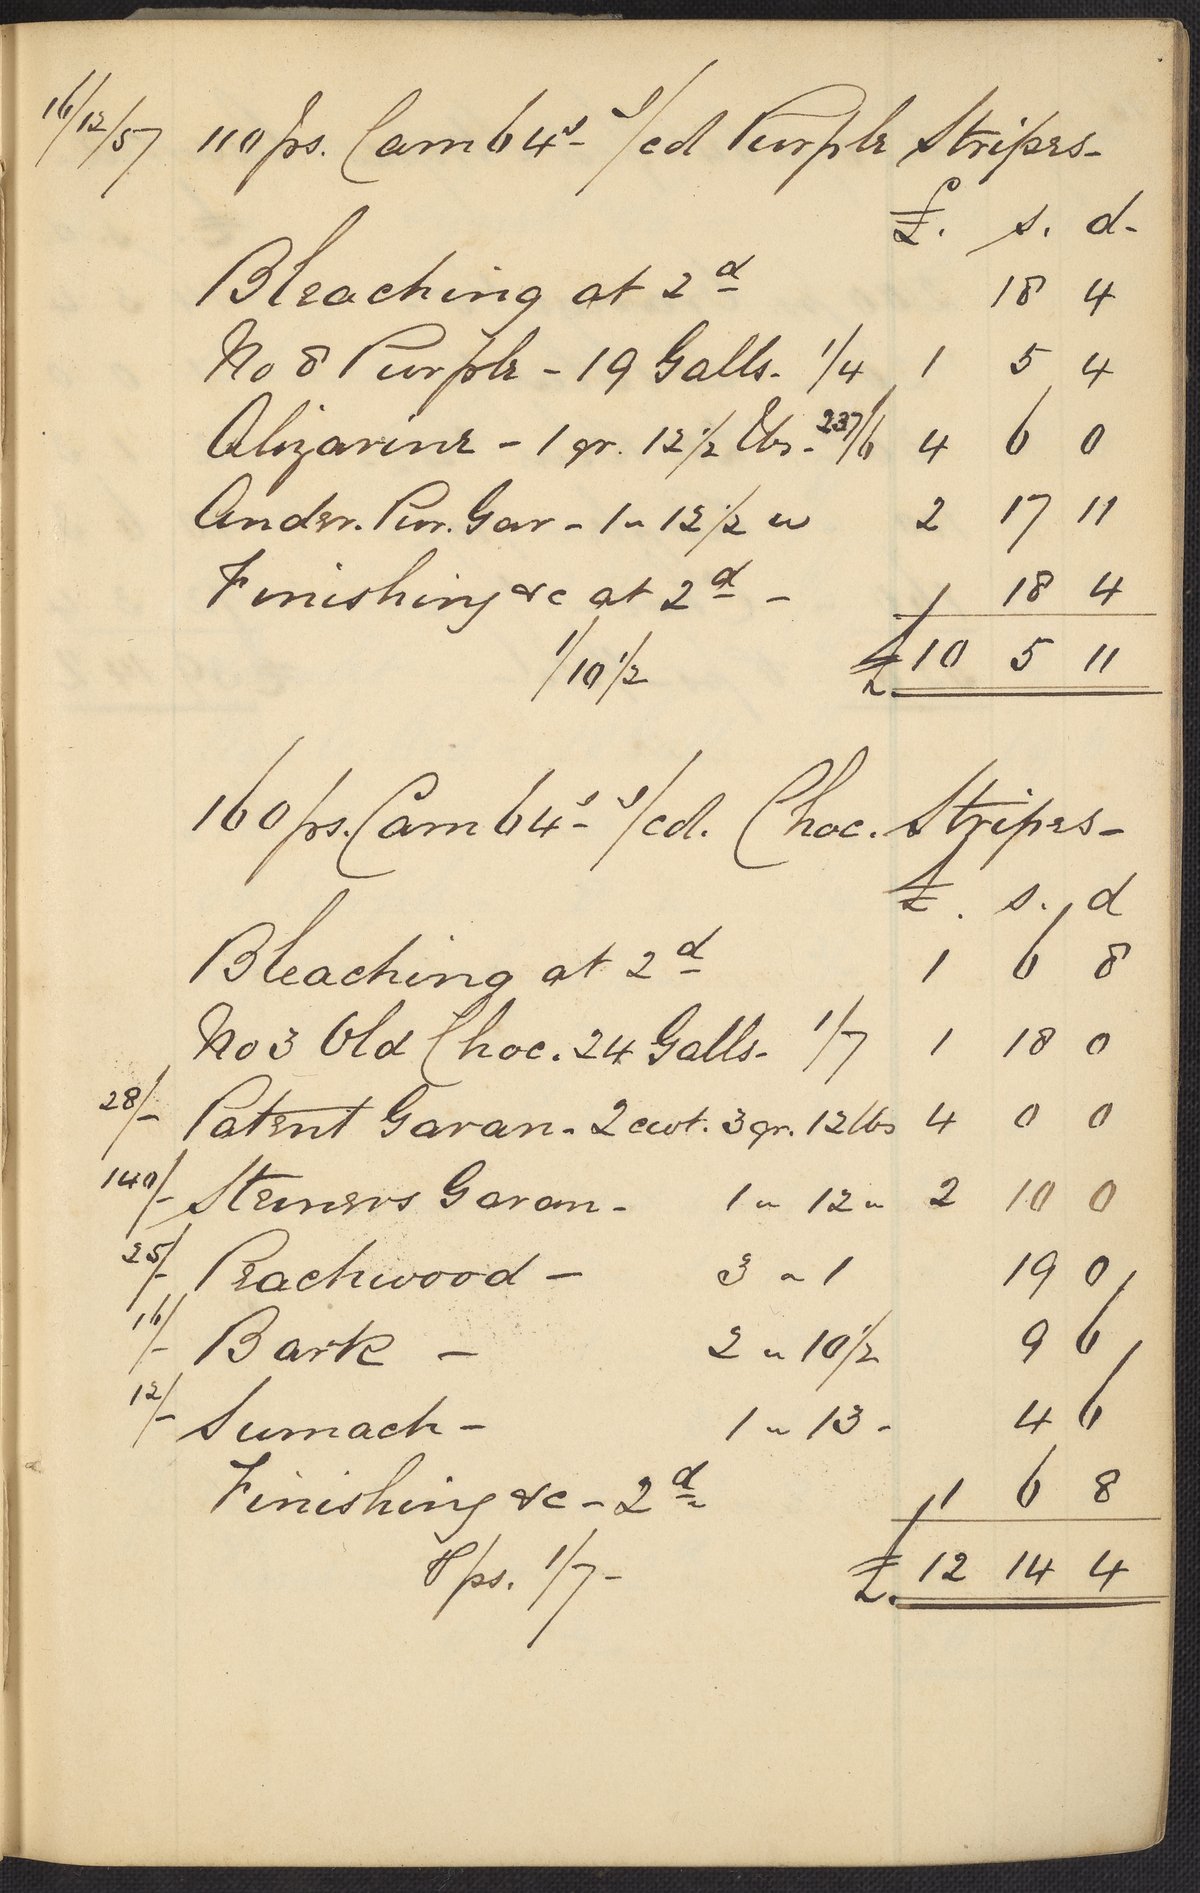 16/12/57 110 ps. Cam 64s- s/cd Purple Stripes-
£. s. d-
Bleaching at 2d 18 4
No 8 Purple - 19 Galls. 1/4 1 5 4
Alizarine - 1 qr. 12 1/2 lbs. 237/6 4 6 0
Ander. Pur. Gar - 1 " 12 1/2 " 2 17 11
Finishing &c at 2d - 18 4
1/10 1/2 £ 10 5 11
160 ps. Cam 64s- s/cd. Choc. Stripes-
£. s. d
Bleaching at 2d 1 6 8
No 3 Old Choc. 24 Galls- 1/7 1 18 0
28/- Patent Garan- 2 cwt. 3 qr. 12 lbs 4 0 0
140/- Steiners Garan- 1 " 12 " 2 10 0
25/- Peachwood - 3 " 1 19 0
16/- Bark - 2 " 10 1/2 9 6
12/- Sumach - 1 " 13 - 4 6
Finishing &c - 2d 1 6 8
℔ ps. 1/7- £. 12 14 4